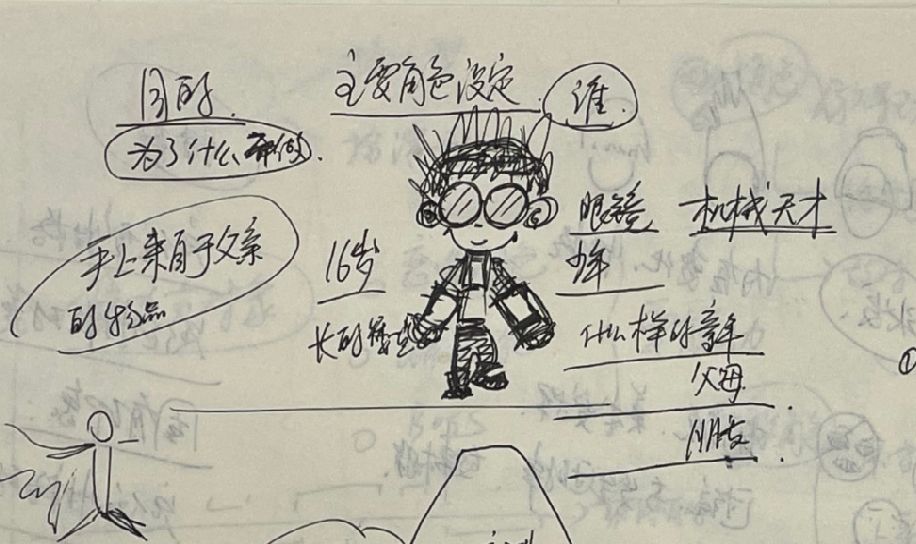 主要角色设定
谁.
目的
为了什么而做.
手上来自于父亲
的物品
16岁
长的模
眼镜
机械天才
少年
什么样的童年
父母
朋友
①